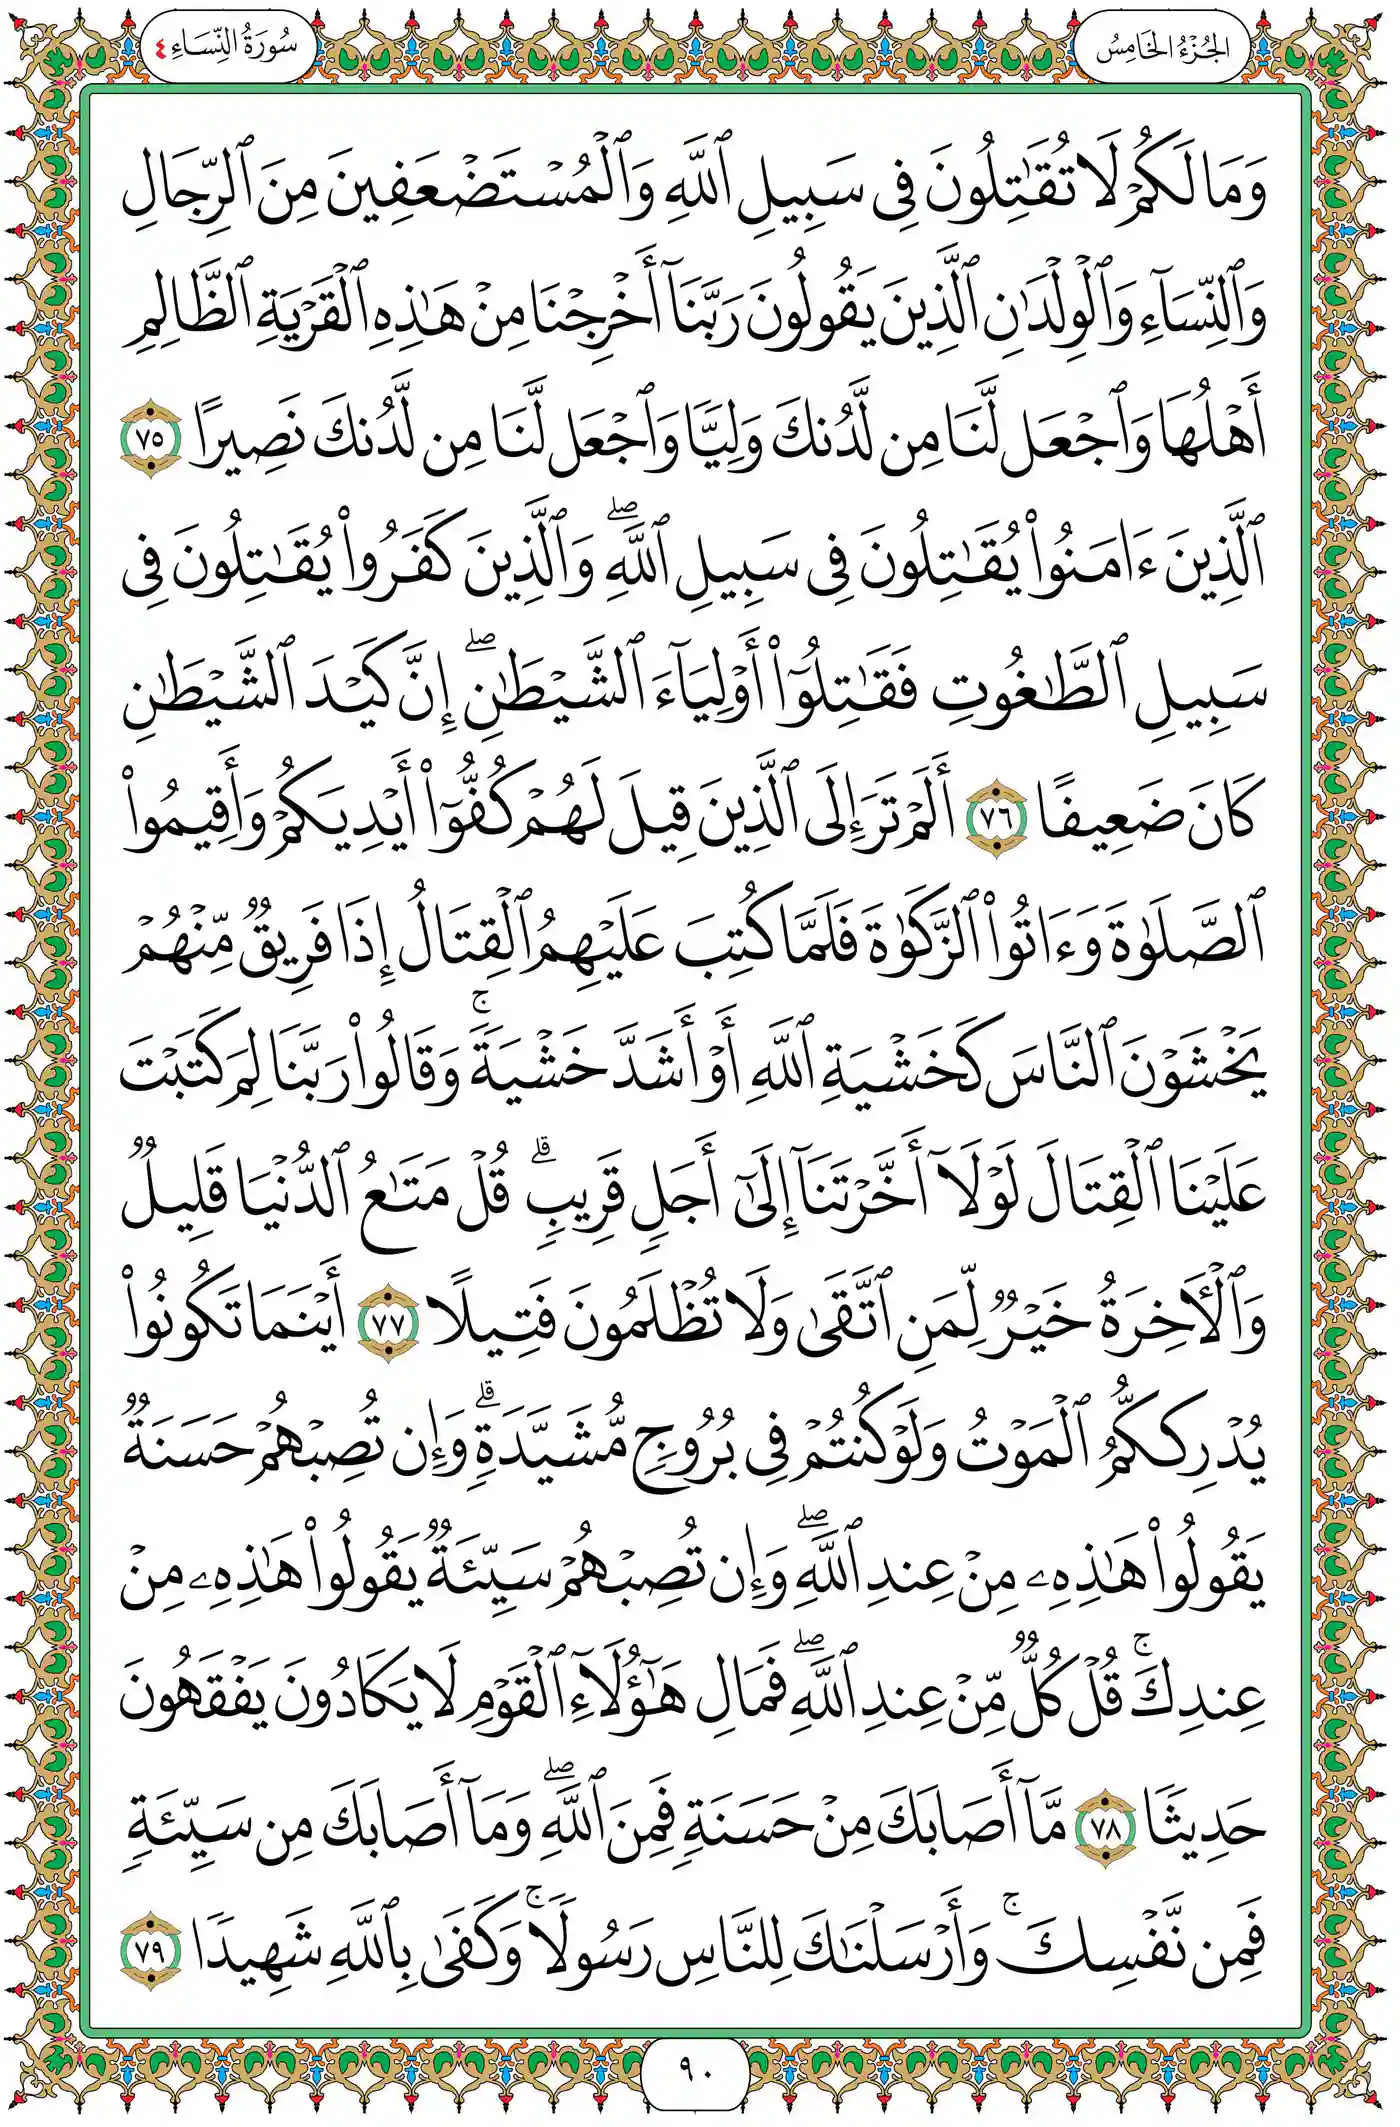 الجُزْءُ الخَامِسُ
سُورَةُ النِّسَاءِ ٤
وَمَا لَكُمْ لَا تُقَٰتِلُونَ فِى سَبِيلِ ٱللَّهِ وَٱلْمُسْتَضْعَفِينَ مِنَ ٱلرِّجَالِ
وَٱلنِّسَآءِ وَٱلْوِلْدَٰنِ ٱلَّذِينَ يَقُولُونَ رَبَّنَآ أَخْرِجْنَا مِنْ هَٰذِهِ ٱلْقَرْيَةِ ٱلظَّالِمِ
أَهْلُهَا وَٱجْعَل لَّنَا مِن لَّدُنكَ وَلِيًّا وَٱجْعَل لَّنَا مِن لَّدُنكَ نَصِيرًا ٧٥
ٱلَّذِينَ ءَامَنُوا۟ يُقَٰتِلُونَ فِى سَبِيلِ ٱللَّهِ ۖ وَٱلَّذِينَ كَفَرُوا۟ يُقَٰتِلُونَ فِى
سَبِيلِ ٱلطَّٰغُوتِ فَقَٰتِلُوٓا۟ أَوْلِيَآءَ ٱلشَّيْطَٰنِ ۖ إِنَّ كَيْدَ ٱلشَّيْطَٰنِ
كَانَ ضَعِيفًا ٧٦ أَلَمْ تَرَ إِلَى ٱلَّذِينَ قِيلَ لَهُمْ كُفُّوٓا۟ أَيْدِيَكُمْ وَأَقِيمُوا۟
ٱلصَّلَوٰةَ وَءَاتُوا۟ ٱلزَّكَوٰةَ فَلَمَّا كُتِبَ عَلَيْهِمُ ٱلْقِتَالُ إِذَا فَرِيقٌ مِّنْهُمْ
يَخْشَوْنَ ٱلنَّاسَ كَخَشْيَةِ ٱللَّهِ أَوْ أَشَدَّ خَشْيَةً ۚ وَقَالُوا۟ رَبَّنَا لِمَ كَتَبْتَ
عَلَيْنَا ٱلْقِتَالَ لَوْلَآ أَخَّرْتَنَآ إِلَىٰٓ أَجَلٍ قَرِيبٍ ۗ قُلْ مَتَٰعُ ٱلدُّنْيَا قَلِيلٌ
وَٱلْأَخِرَةُ خَيْرٌ لِّمَنِ ٱتَّقَىٰ وَلَا تُظْلَمُونَ فَتِيلًا ٧٧ أَيْنَمَا تَكُونُوا۟
يُدْرِككُّمُ ٱلْمَوْتُ وَلَوْ كُنتُمْ فِى بُرُوجٍ مُّشَيَّدَةٍ ۗ وَإِن تُصِبْهُمْ حَسَنَةٌ
يَقُولُوا۟ هَٰذِهِۦ مِنْ عِندِ ٱللَّهِ ۖ وَإِن تُصِبْهُمْ سَيِّئَةٌ يَقُولُوا۟ هَٰذِهِۦ مِنْ
عِندِكَ ۚ قُلْ كُلٌّ مِّنْ عِندِ ٱللَّهِ ۖ فَمَالِ هَٰٓؤُلَآءِ ٱلْقَوْمِ لَا يَكَادُونَ يَفْقَهُونَ
حَدِيثًا ٧٨ مَّآ أَصَابَكَ مِنْ حَسَنَةٍ فَمِنَ ٱللَّهِ ۖ وَمَآ أَصَابَكَ مِن سَيِّئَةٍ
فَمِن نَّفْسِكَ ۚ وَأَرْسَلْنَٰكَ لِلنَّاسِ رَسُولًا ۚ وَكَفَىٰ بِٱللَّهِ شَهِيدًا ٧٩
٩٠